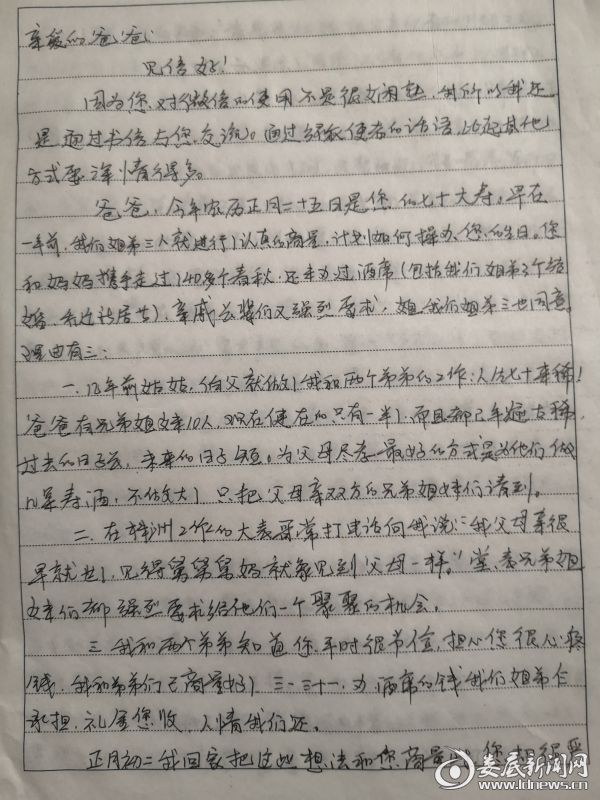 亲爱的爸爸:
见信好!
因为您对微信的使用不是很娴熟,所以我还
是通过书信与您交流。通过绿衣使者的话语,比起其他
方式要深情得多。
爸爸,今年农历正月二十五日是您的七十大寿。早在
一年前,我们姐弟三人就进行了认真的商量,计划如何操办您的生日。您
和妈妈携手走过了40多个春秋,还未办过酒席(包括我们姐弟3个结
婚、乔迁新居等),亲戚长辈们又强烈要求,我们姐弟三也同意。
理由有三:
一、年前姑姑,伯父就做了我和两个弟弟的工作:人生七十来稀!
爸爸有兄弟姐妹10人,现在健在的只有一半了,而且都已年逾古稀,
过去的日子长,未来的日子短。为父母尽孝最好的方式是为他们做
几桌寿酒,不做大了,只把父母亲双方的兄弟姐妹们请到。
二、在株洲工作的大表哥常打电话向我说:"我父母亲很
早就去了,见得舅舅舅妈就象见到父母一样。"堂、表兄弟姐
妹们都强烈要求给他们一个聚聚的机会。
三、我和两个弟弟知道您平时很节俭,担心您很心疼
钱,我和弟弟们已商量好了三·三十一,办酒席的钱我们姐弟仨
承担,礼金您收,人情我们还。
正月初二我回家把这些想法和您商量 您 很
娄底新闻网
www.ldnews.cn